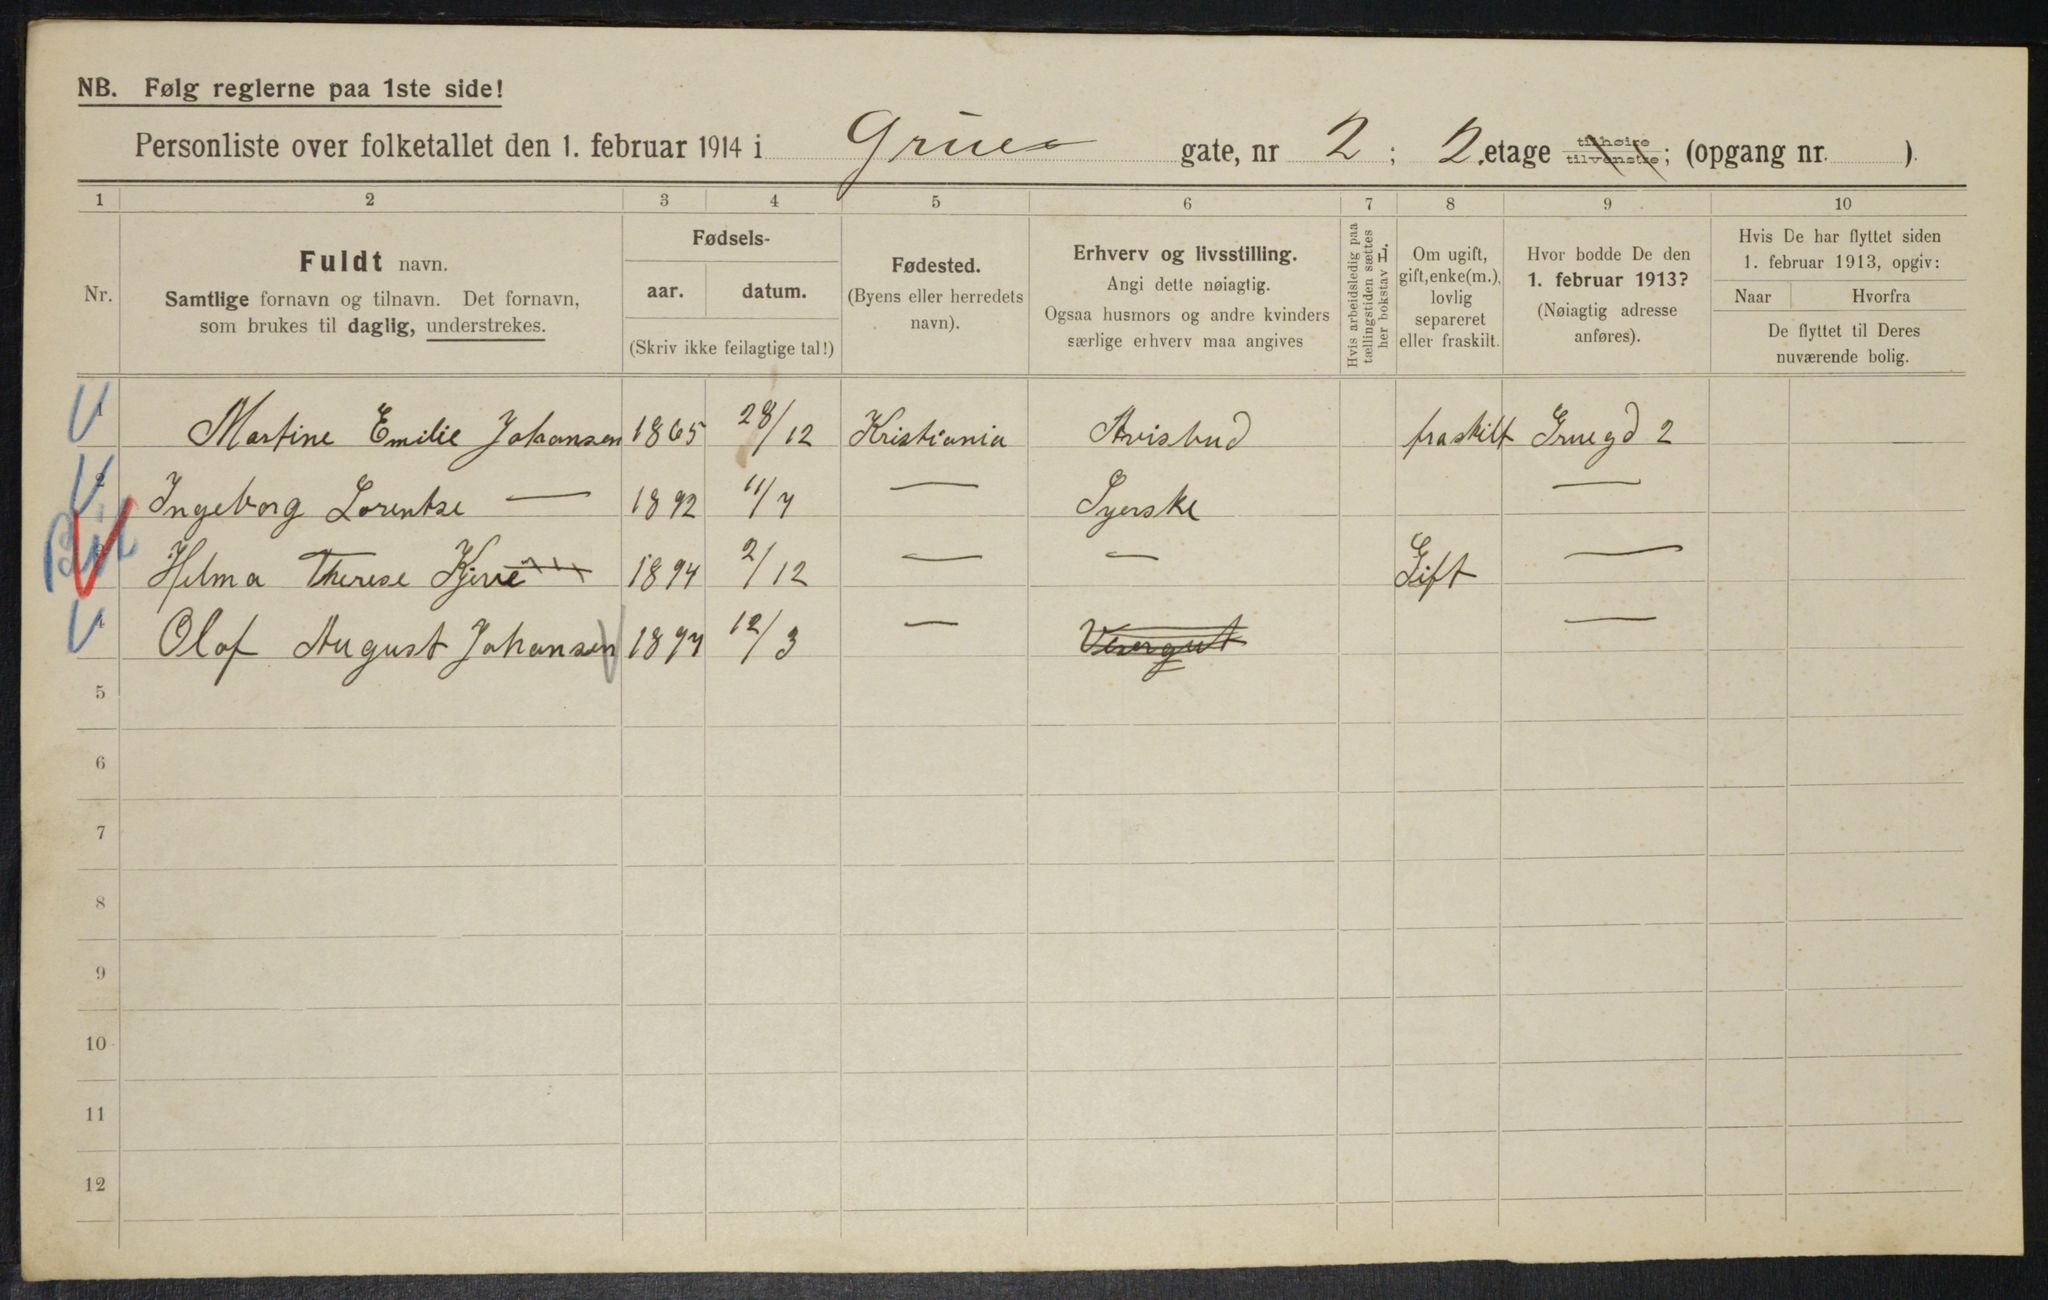 NB. Følg reglerne paa 1ste side!
Personliste over folketallet den 1. februar 1914 i Grue gate, nr 2 ; 2. etage tilhøire tilvenstre; (opgang nr. ).
1 2 3 4 5 6 7 8 9 10
Nr.
Fuldt navn.
Samtlige fornavn og tilnavn. Det fornavn,
som brukes til daglig, understrekes.
Fødsels-
aar. datum.
(Skriv ikke feilagtige tal!)
Fødested.
(Byens eller herredets
navn).
Erhverv og livsstilling.
Angi dette nøiagtig.
Ogsaa husmors og andre kvinders
særlige erhverv maa angives
Hvis arbeidsledig paa
tællingstiden sættes
her bokstav L.
Om ugift,
gift, enke(m.),
lovlig
separeret
eller fraskilt.
Hvor bodde De den
1. februar 1913?
(Nøiagtig adresse
anføres).
Hvis De har flyttet siden
1. februar 1913, opgiv:
Naar Hvorfra
De flyttet til Deres
nuværende bolig.
1 Martine Emilie Johansen 1865 28/12 Kristiania Avisbud fraskilt Gruegd 2
2 Ingeborg Lorentze — 1892 11/7 — Syerske —
3 Helma Therese 1894 2/12 — — Gift —
4 Olaf August Johansen 1897 12/3 — Visergut —
5
6
7
8
9
10
11
12